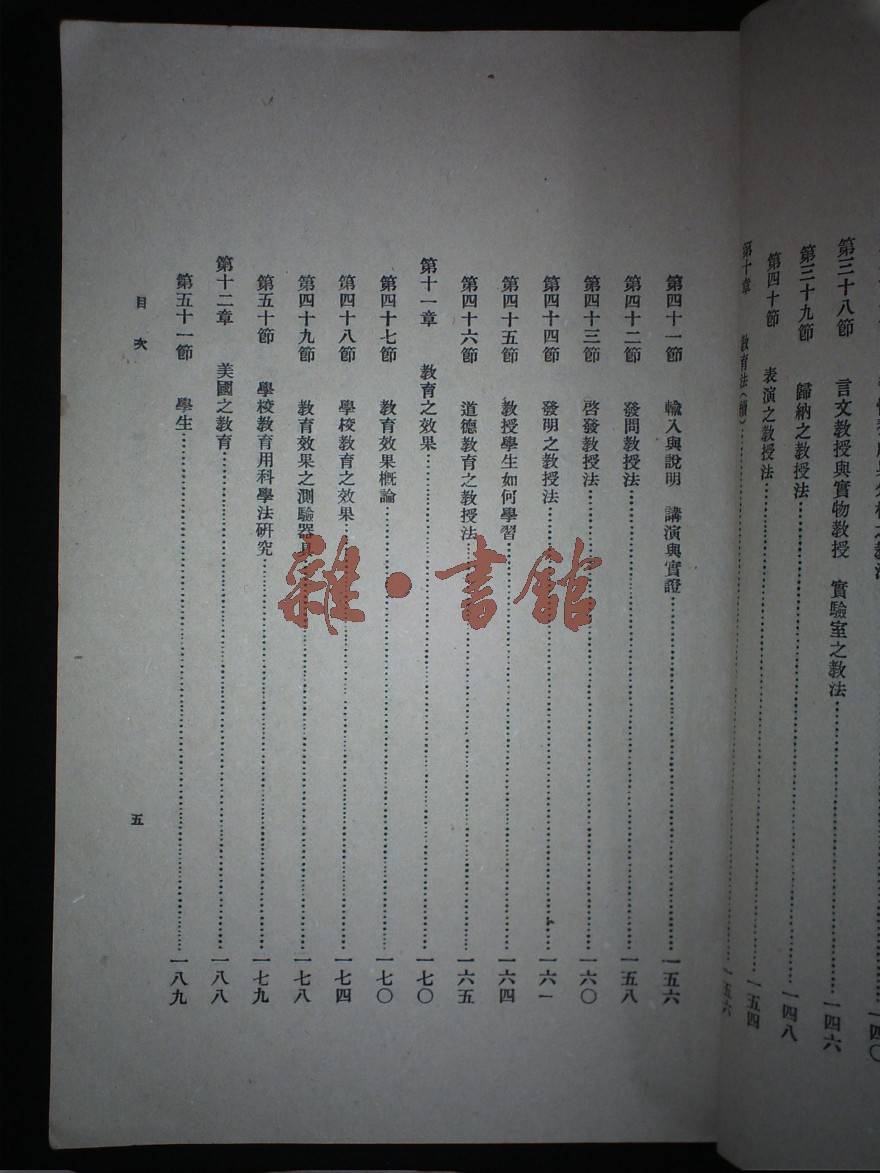 第三十八節 言文教授與實物教授 實驗室之教法 一四六
第三十九節 歸納之教授法 一四八
第四十節 表演之教授法 一五四
第十章 教育法(續) 一五六
第四十一節 輸入與說明 講演與實證 一五六
第四十二節 發問教授法 一五八
第四十三節 啓發教授法 一六〇
第四十四節 發明之教授法 一六一
第四十五節 教授學生如何學習 一六四
第四十六節 道德教育之教授法 一六五
第十一章 教育之效果 一七〇
第四十七節 教育效果概論 一七〇
第四十八節 學校教育之效果 一七四
第四十九節 教育效果之測驗器具 一七八
第五十節 學校教育用科學法研究 一七九
第十二章 美國之教育 一八八
第五十一節 學生 一八九
目次
五
雜·書館